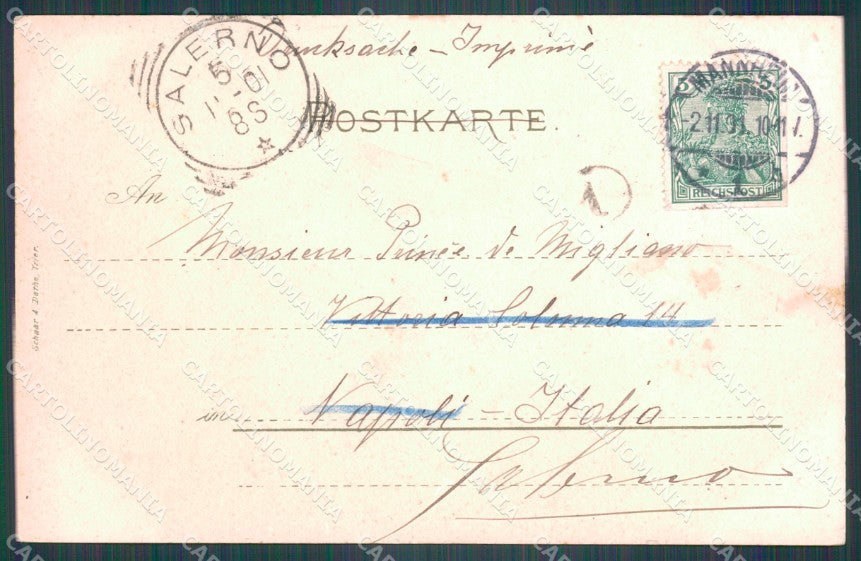 Drucksache - Imprimé
SALERNO
POSTKARTE.
MANNHEIM
2.11.
10-11 V.
5 5
REICHSPOST
1
An
Monsieur Prince de Migliano
Vittoria Colonna 14
in Napoli - Italia
Salerno
Schaar & Dathe, Trier.
CARTOLINOMANIA